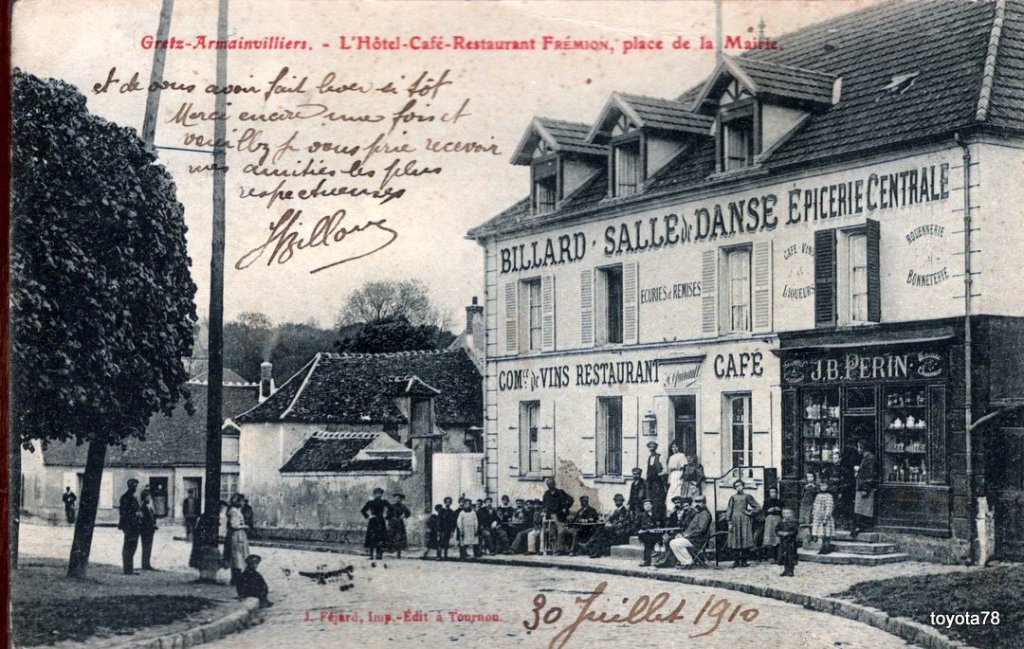 Gretz-Armainvilliers. - L'Hôtel-Café-Restaurant FRÉMION, place de la Mairie.
et de vous avoir fait lever si tôt
Merci encore une fois et
veuillez je vous prie recevoir
mes amitiés les plus
respectueuses
HBillon
BILLARD · SALLE de DANSE ÉPICERIE CENTRALE
ÉCURIES & REMISES
CAFÉ VINS
&
LIQUEURS
ROUENNERIE
&
BONNETERIE
COM.ce DE VINS RESTAURANT
CAFÉ
J.B. PERIN
J. Féjard, Imp.-Édit à Tournon.
30 Juillet 1910
toyota78